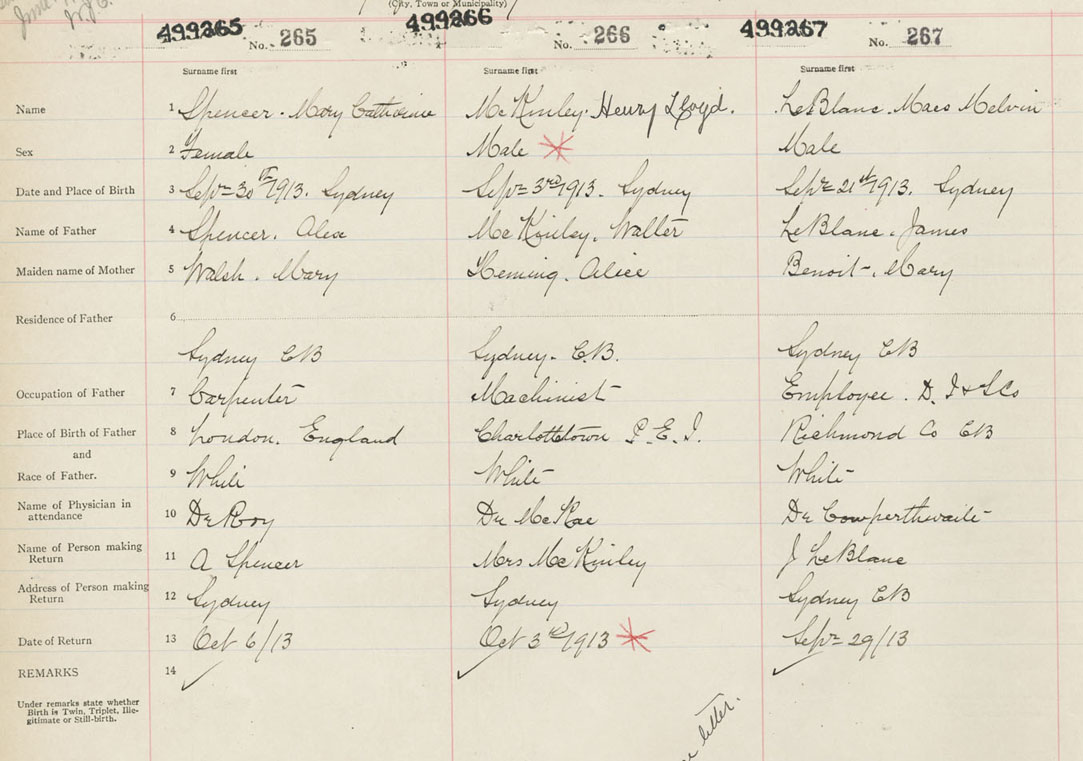 (City, Town or Municipality)
499265 No. 265 499266 No. 266 499267 No. 267
Surname first Surname first Surname first
Name 1 Spencer. Mary Catherine McKinley. Henry Lloyd. LeBlanc. Maes Melvin
Sex 2 Female Male Male
Date and Place of Birth 3 Sept 30th 1913. Sydney Sept 3rd 1913. Sydney Sept 21st 1913. Sydney
Name of Father 4 Spencer. Alex McKinley. Walter LeBlanc. James
Maiden name of Mother 5 Walsh. Mary Heming. Alice Benoit. Mary
Residence of Father 6
Sydney CB Sydney. C.B. Sydney CB
Occupation of Father 7 Carpenter Machinist Employee. D. I & S Co
Place of Birth of Father 8 London. England Charlottetown P.E.I. Richmond Co CB
and
Race of Father. 9 White White White
Name of Physician in
attendance 10 Dr Roy Dr McRae Dr Cowperthwaite
Name of Person making
Return 11 A Spencer Mrs McKinley J LeBlanc
Address of Person making
Return 12 Sydney Sydney Sydney CB
Date of Return 13 Oct 6/13 Oct 3rd 1913 Sept 29/13
REMARKS 14
Under remarks state whether
Birth is Twin, Triplet, Ille-
gitimate or Still-birth.
letter.